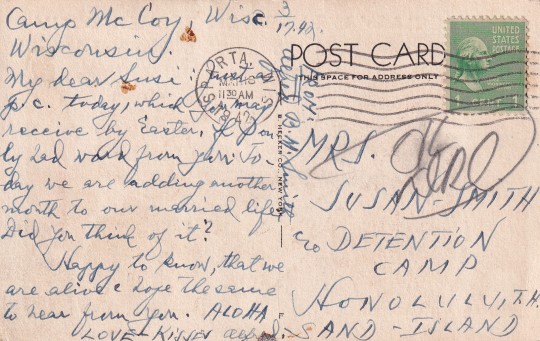 Camp McCoy, Wisc. 3/17.42.
Wisconsin.
My dear Susi - just a
p.c. today, which may
receive by Easter, if on
ly had word from you. To-
day we are adding another
month to our married life
Did you think of it?
Happy to know, that we
are alive & hope the same
to hear from you. ALOHA
LOVE - Kisses
SPARTA,
WIS.
MAR
11 30 AM
1942
POST CARD
THIS SPACE FOR ADDRESS ONLY
UNITED
STATES
POSTAGE
1
1
From:
MRS.
SUSAN - SMITH
c/o DETENTION
CAMP
HONOLULU T.H.
SAND - ISLAND